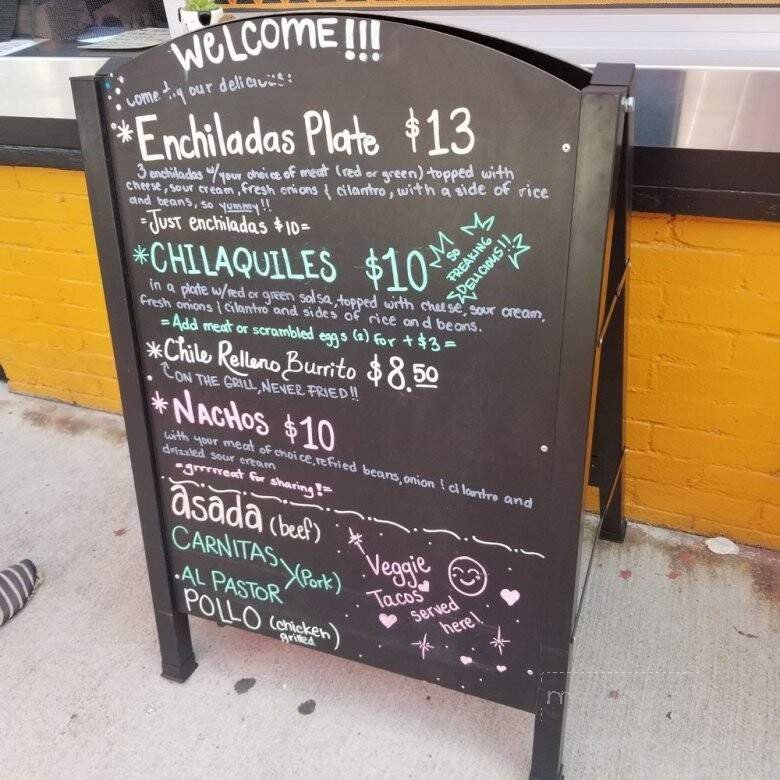 WELCOME!!!
come our delicious:
*Enchiladas Plate $13
3 enchiladas w/your choice of meat (red or green) topped with
cheese, sour cream, fresh onions & cilantro, with a side of rice
and beans, so yummy!!
=Just enchiladas $10=
*CHILAQUILES $10
SO
FREAKING
DELICIOUS!!
in a plate w/red or green salsa, topped with cheese, sour cream,
fresh onions & cilantro and sides of rice and beans.
=Add meat or scrambled eggs (2) for +$3=
*Chile Relleno Burrito $8.50
ON THE GRILL, NEVER FRIED!!
*NACHOS $10
with your meat of choice, refried beans, onion & cilantro and
drizzled sour cream
=grrrrreat for sharing!=
asada (beef)
CARNITAS
(Pork)
·AL PASTOR
POLLO (chicken)
grilled
Veggie
Tacos
served
here!